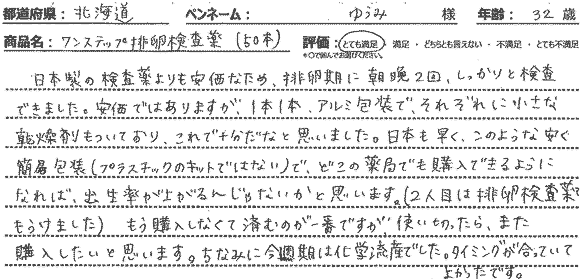 都道府県：北海道　ペンネーム：ゆうみ　様　年齢：32 歳
商品名：ワンステップ排卵検査薬 (50本)　評価：とても満足・満足・どちらとも言えない・不満足・とても不満足
*○で囲んでお選びください。
日本製の検査薬よりも安価なため、排卵期に朝晩2回、しっかりと検査
できました。安価ではありますが、1本1本、アルミ包装で、それぞれに小さな
乾燥剤もついており、これで十分だなと思いました。日本も早く、このような安く
簡易包装(プラスチックのキットではない)で、どこの薬局でも購入できるように
なれば、出生率が上がるんじゃないかと思います。(2人目は排卵検査薬で
もうけました) もう購入しなくて済むのが一番ですが、使い切ったら、また
購入したいと思います。ちなみに今週期は化学流産でした。タイミングが合っていて
よかったです。